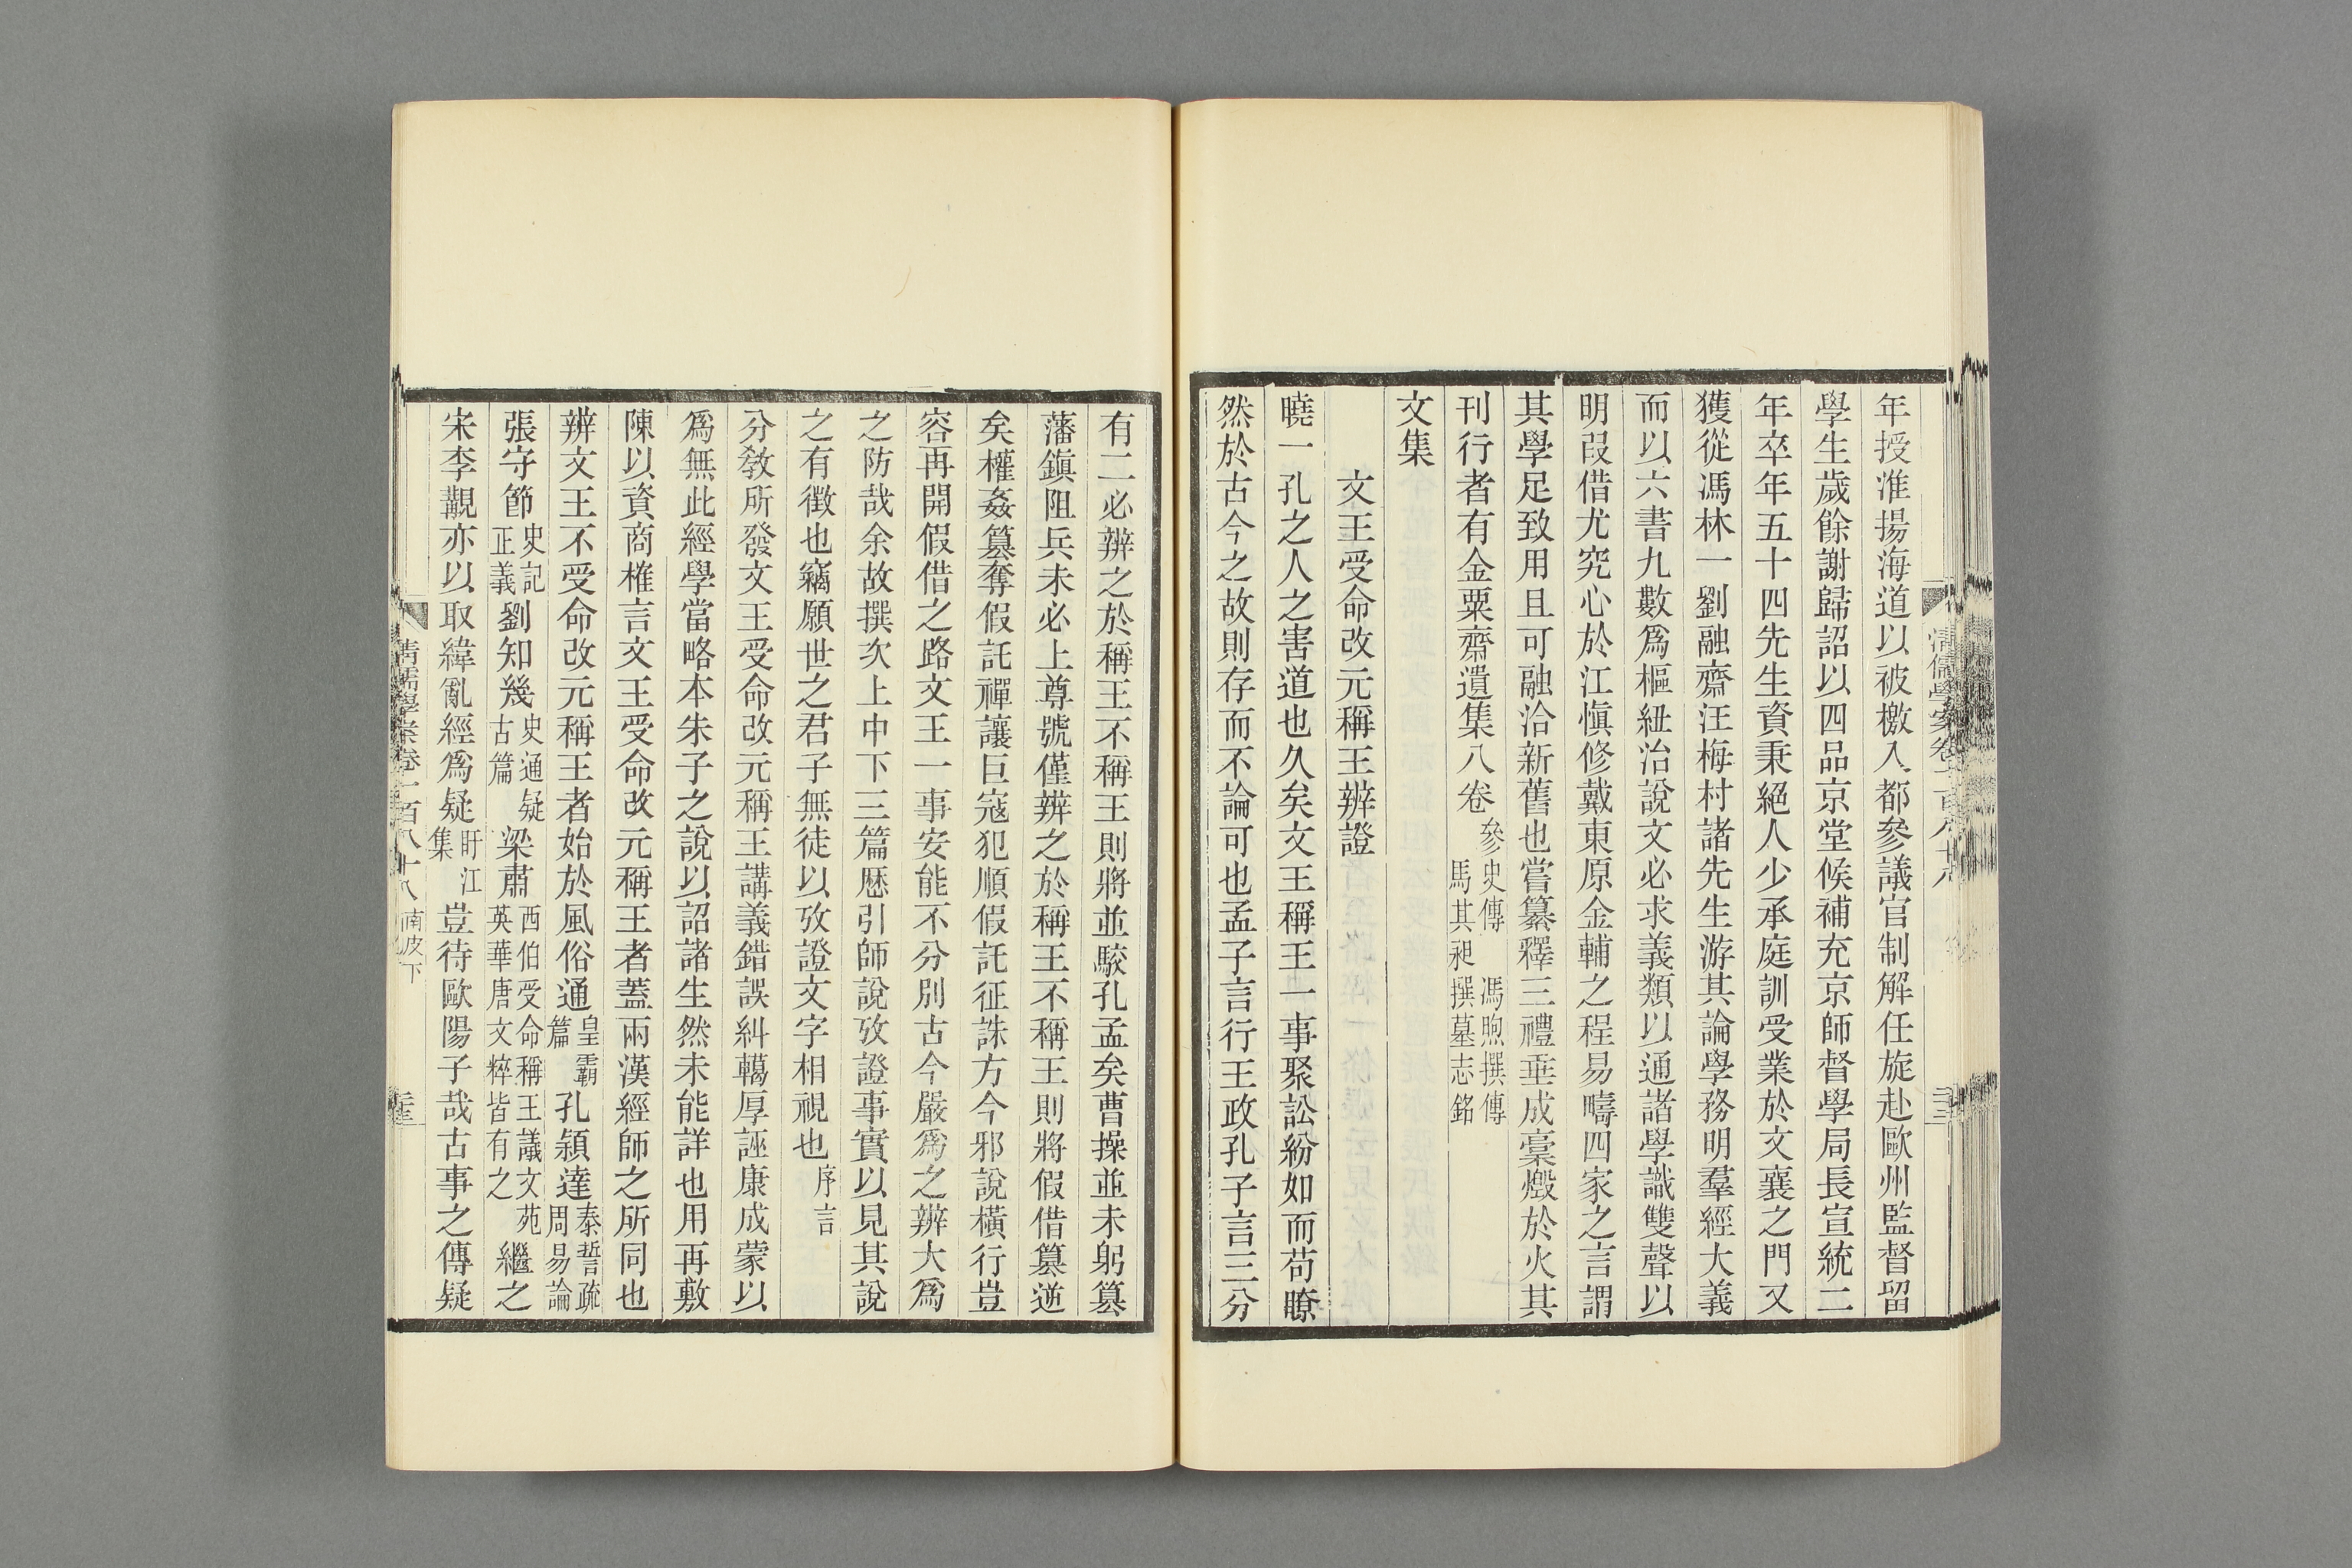 年授淮揚海道以被檄入都參議官制解任旋赴歐州監督留
學生歲餘謝歸詔以四品京堂候補充京師督學局長宣統二
年卒年五十四先生資秉絕人少承庭訓受業於文襄之門又
獲從馮林一劉融齋汪梅村諸先生游其論學務明羣經大義
而以六書九數爲樞紐治說文必求義類以通諸學識雙聲以
明叚借尤究心於江愼修戴東原金輔之程易疇四家之言謂
其學足致用且可融洽新舊也嘗纂釋三禮垂成稾燬於火其
刊行者有金粟齋遺集八卷參史傳 馮煦撰傳 馬其昶撰墓志銘
文集
文王受命改元稱王辨證
曉一孔之人之害道也久矣文王稱王一事聚訟紛如而苟瞭
然於古今之故則存而不論可也孟子言行王政孔子言三分
有二必辨之於稱王不稱王則將並駮孔孟矣曹操並未躬篡
藩鎭阻兵未必上尊號僅辨之於稱王不稱王則將假借篡逆
矣權姦篡奪假託禪讓巨寇犯順假託征誅方今邪說橫行豈
容再開假借之路文王一事安能不分別古今嚴爲之辨大爲
之防哉余故撰次上中下三篇歷引師說攷證事實以見其說
之有徵也竊願世之君子無徒以攷證文字相視也序言
分敎所發文王受命改元稱王講義錯誤糾轕厚誣康成蒙以
爲無此經學當略本朱子之說以詔諸生然未能詳也用再敷
陳以資商榷言文王受命改元稱王者蓋兩漢經師之所同也
辨文王不受命改元稱王者始於風俗通皇霸篇孔穎達泰誓疏周易論
張守節史記正義劉知幾史通疑古篇梁肅西伯受命稱王議文苑英華唐文粹皆有之繼之
宋李覯亦以取緯亂經爲疑盱江集豈待歐陽子哉古事之傳疑
清儒學案卷一百八十八 南皮下